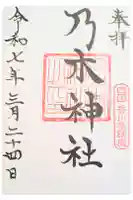 奉拝
乃木神社
令和七年三月二十四日